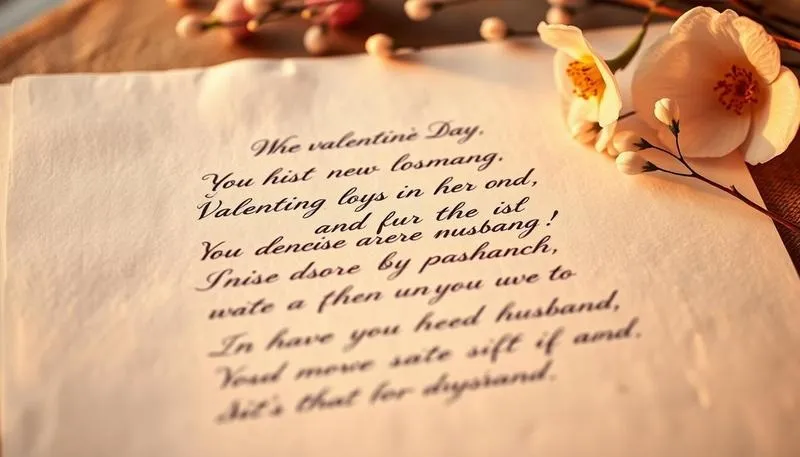 Whe valentine Day,
You hist new losmang.
Valenting loys in her ond,
and fur the ist
You dencise arere nusbang!
Inise dsore by pashanch,
wate a fhen unyou uve to
In have you heed husband,
Yosd mowe sate sift if amd.
Sit's that for dnysrand.